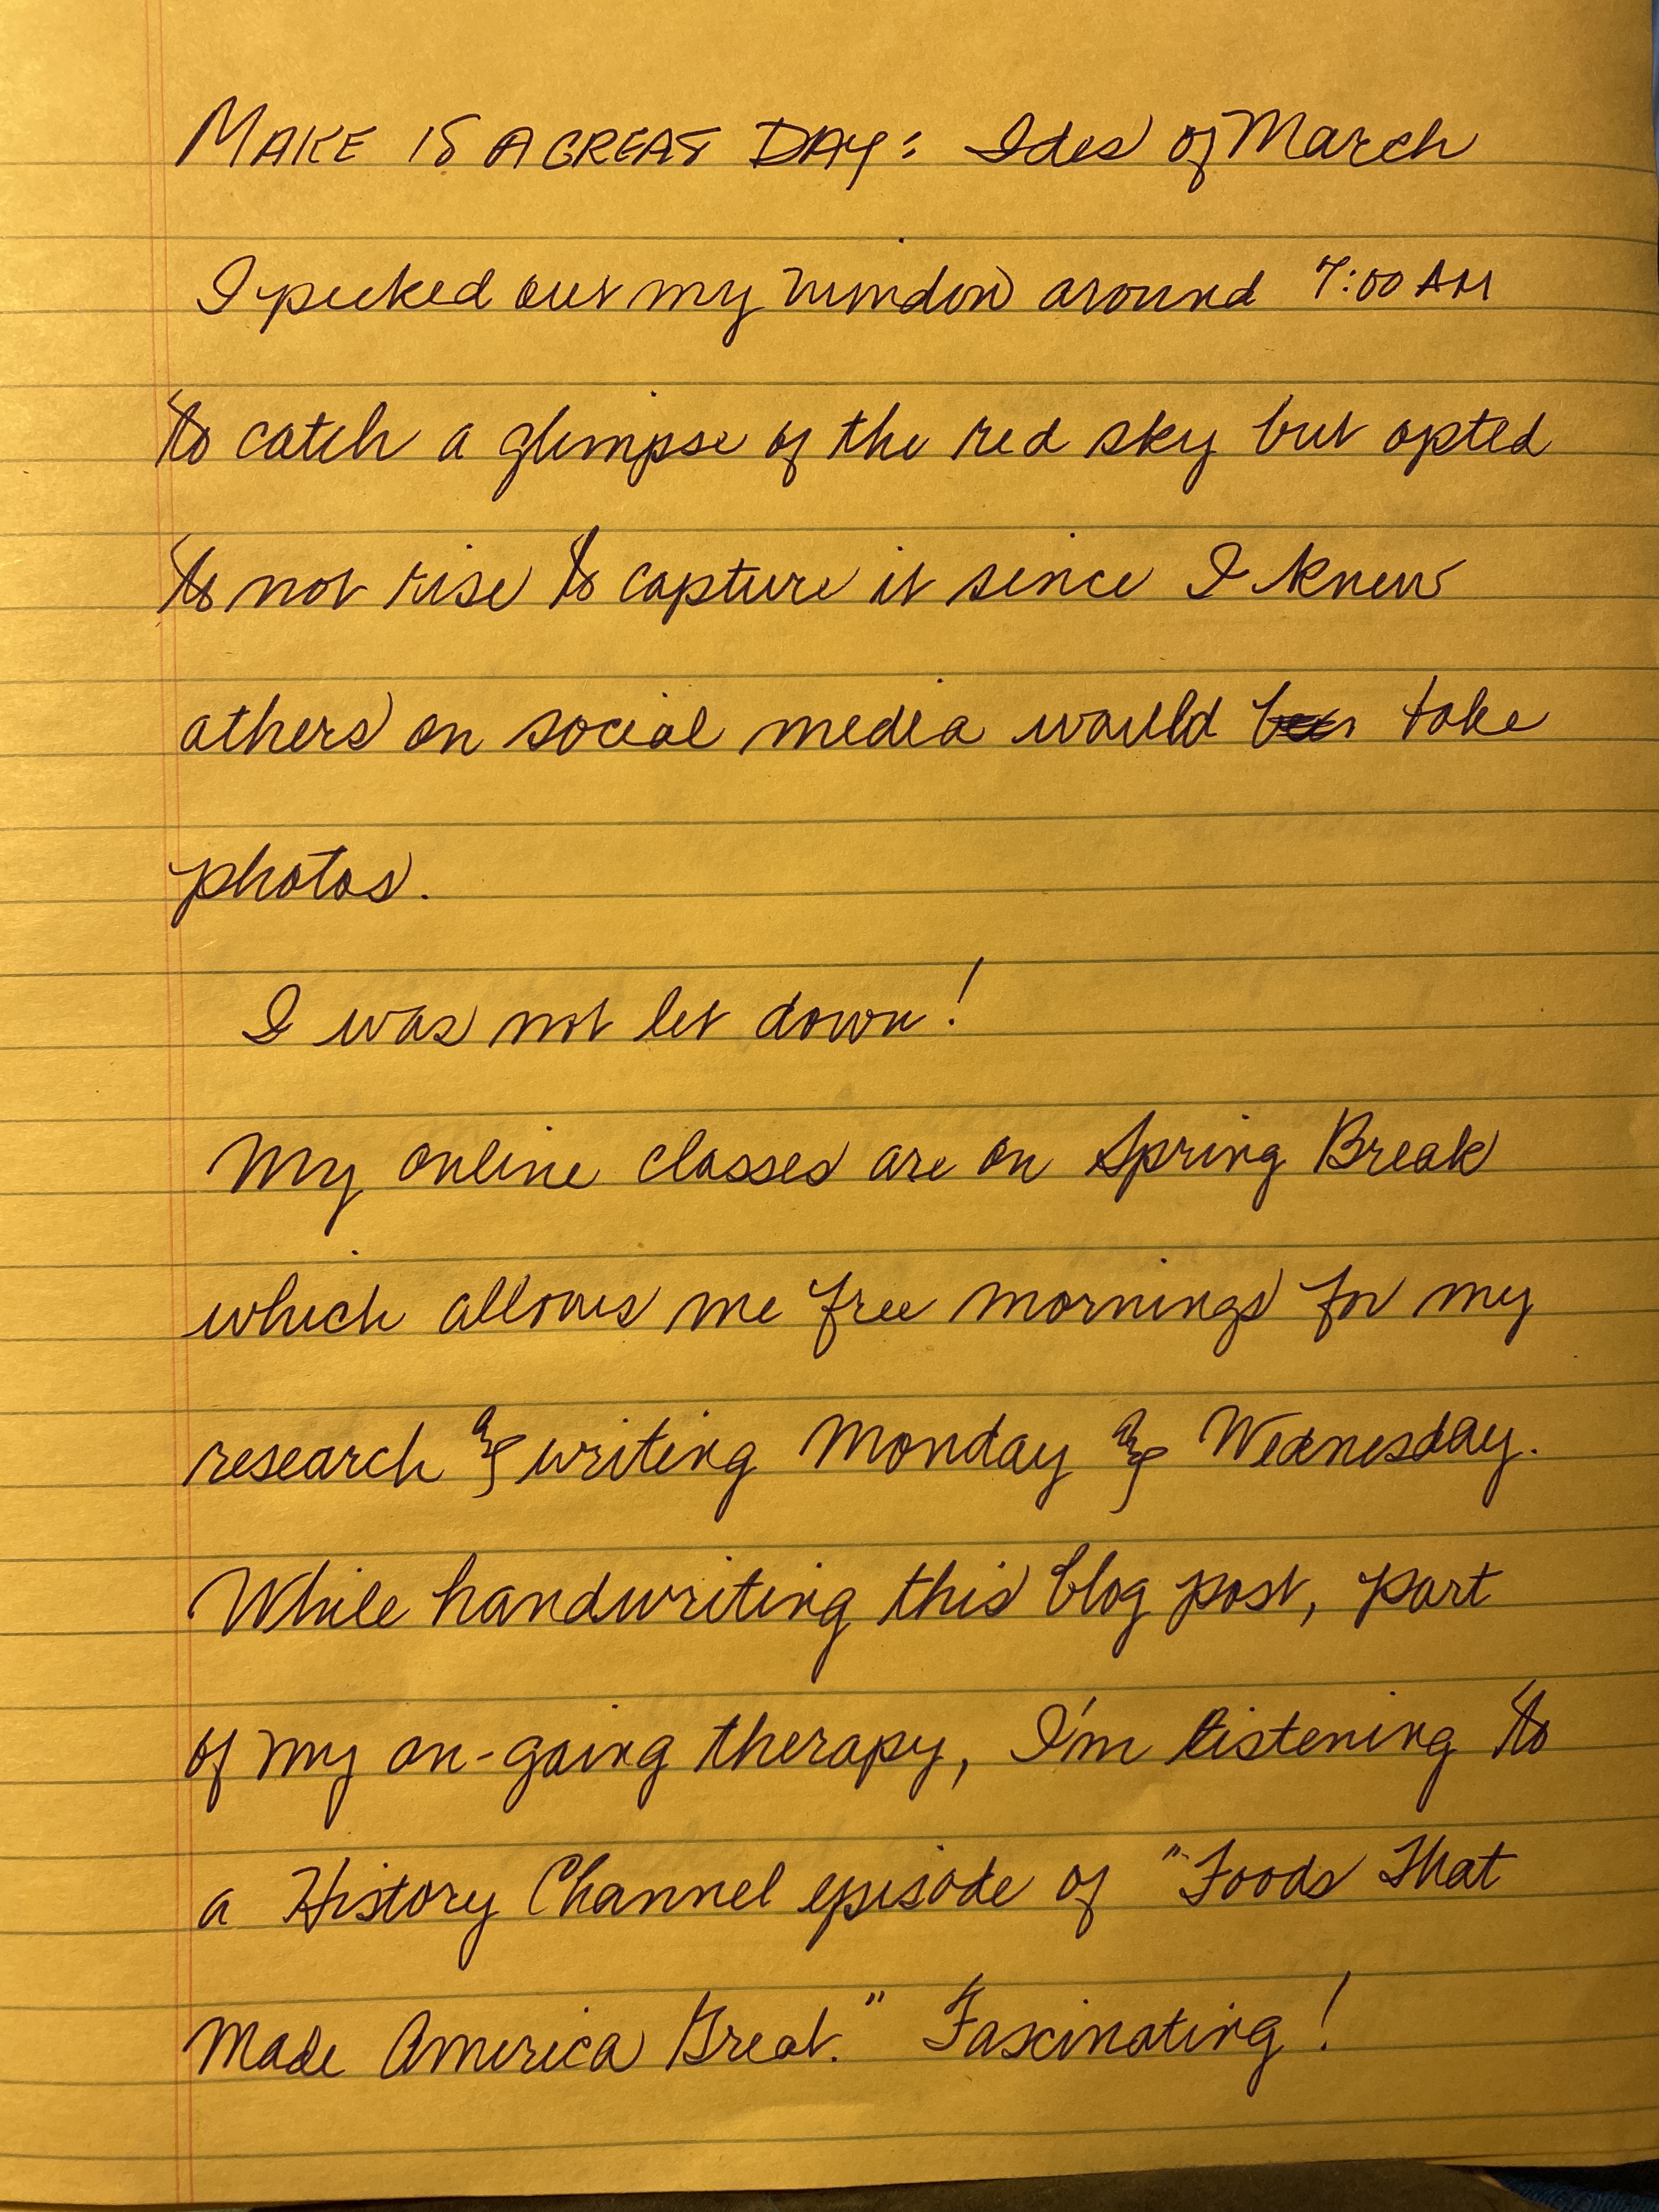 MAKE IT A GREAT DAY: Ides of March
I peeked out my window around 7:00 AM
to catch a glimpse of the red sky but opted
to not rise to capture it since I knew
others on social media would take
photos.
I was not let down!
My online classes are on Spring Break
which allows me free mornings for my
research & writing Monday & Wednesday.
While handwriting this blog post, part
of my on-going therapy, I'm listening to
a History Channel episode of "Foods That
Made America Great." Fascinating!